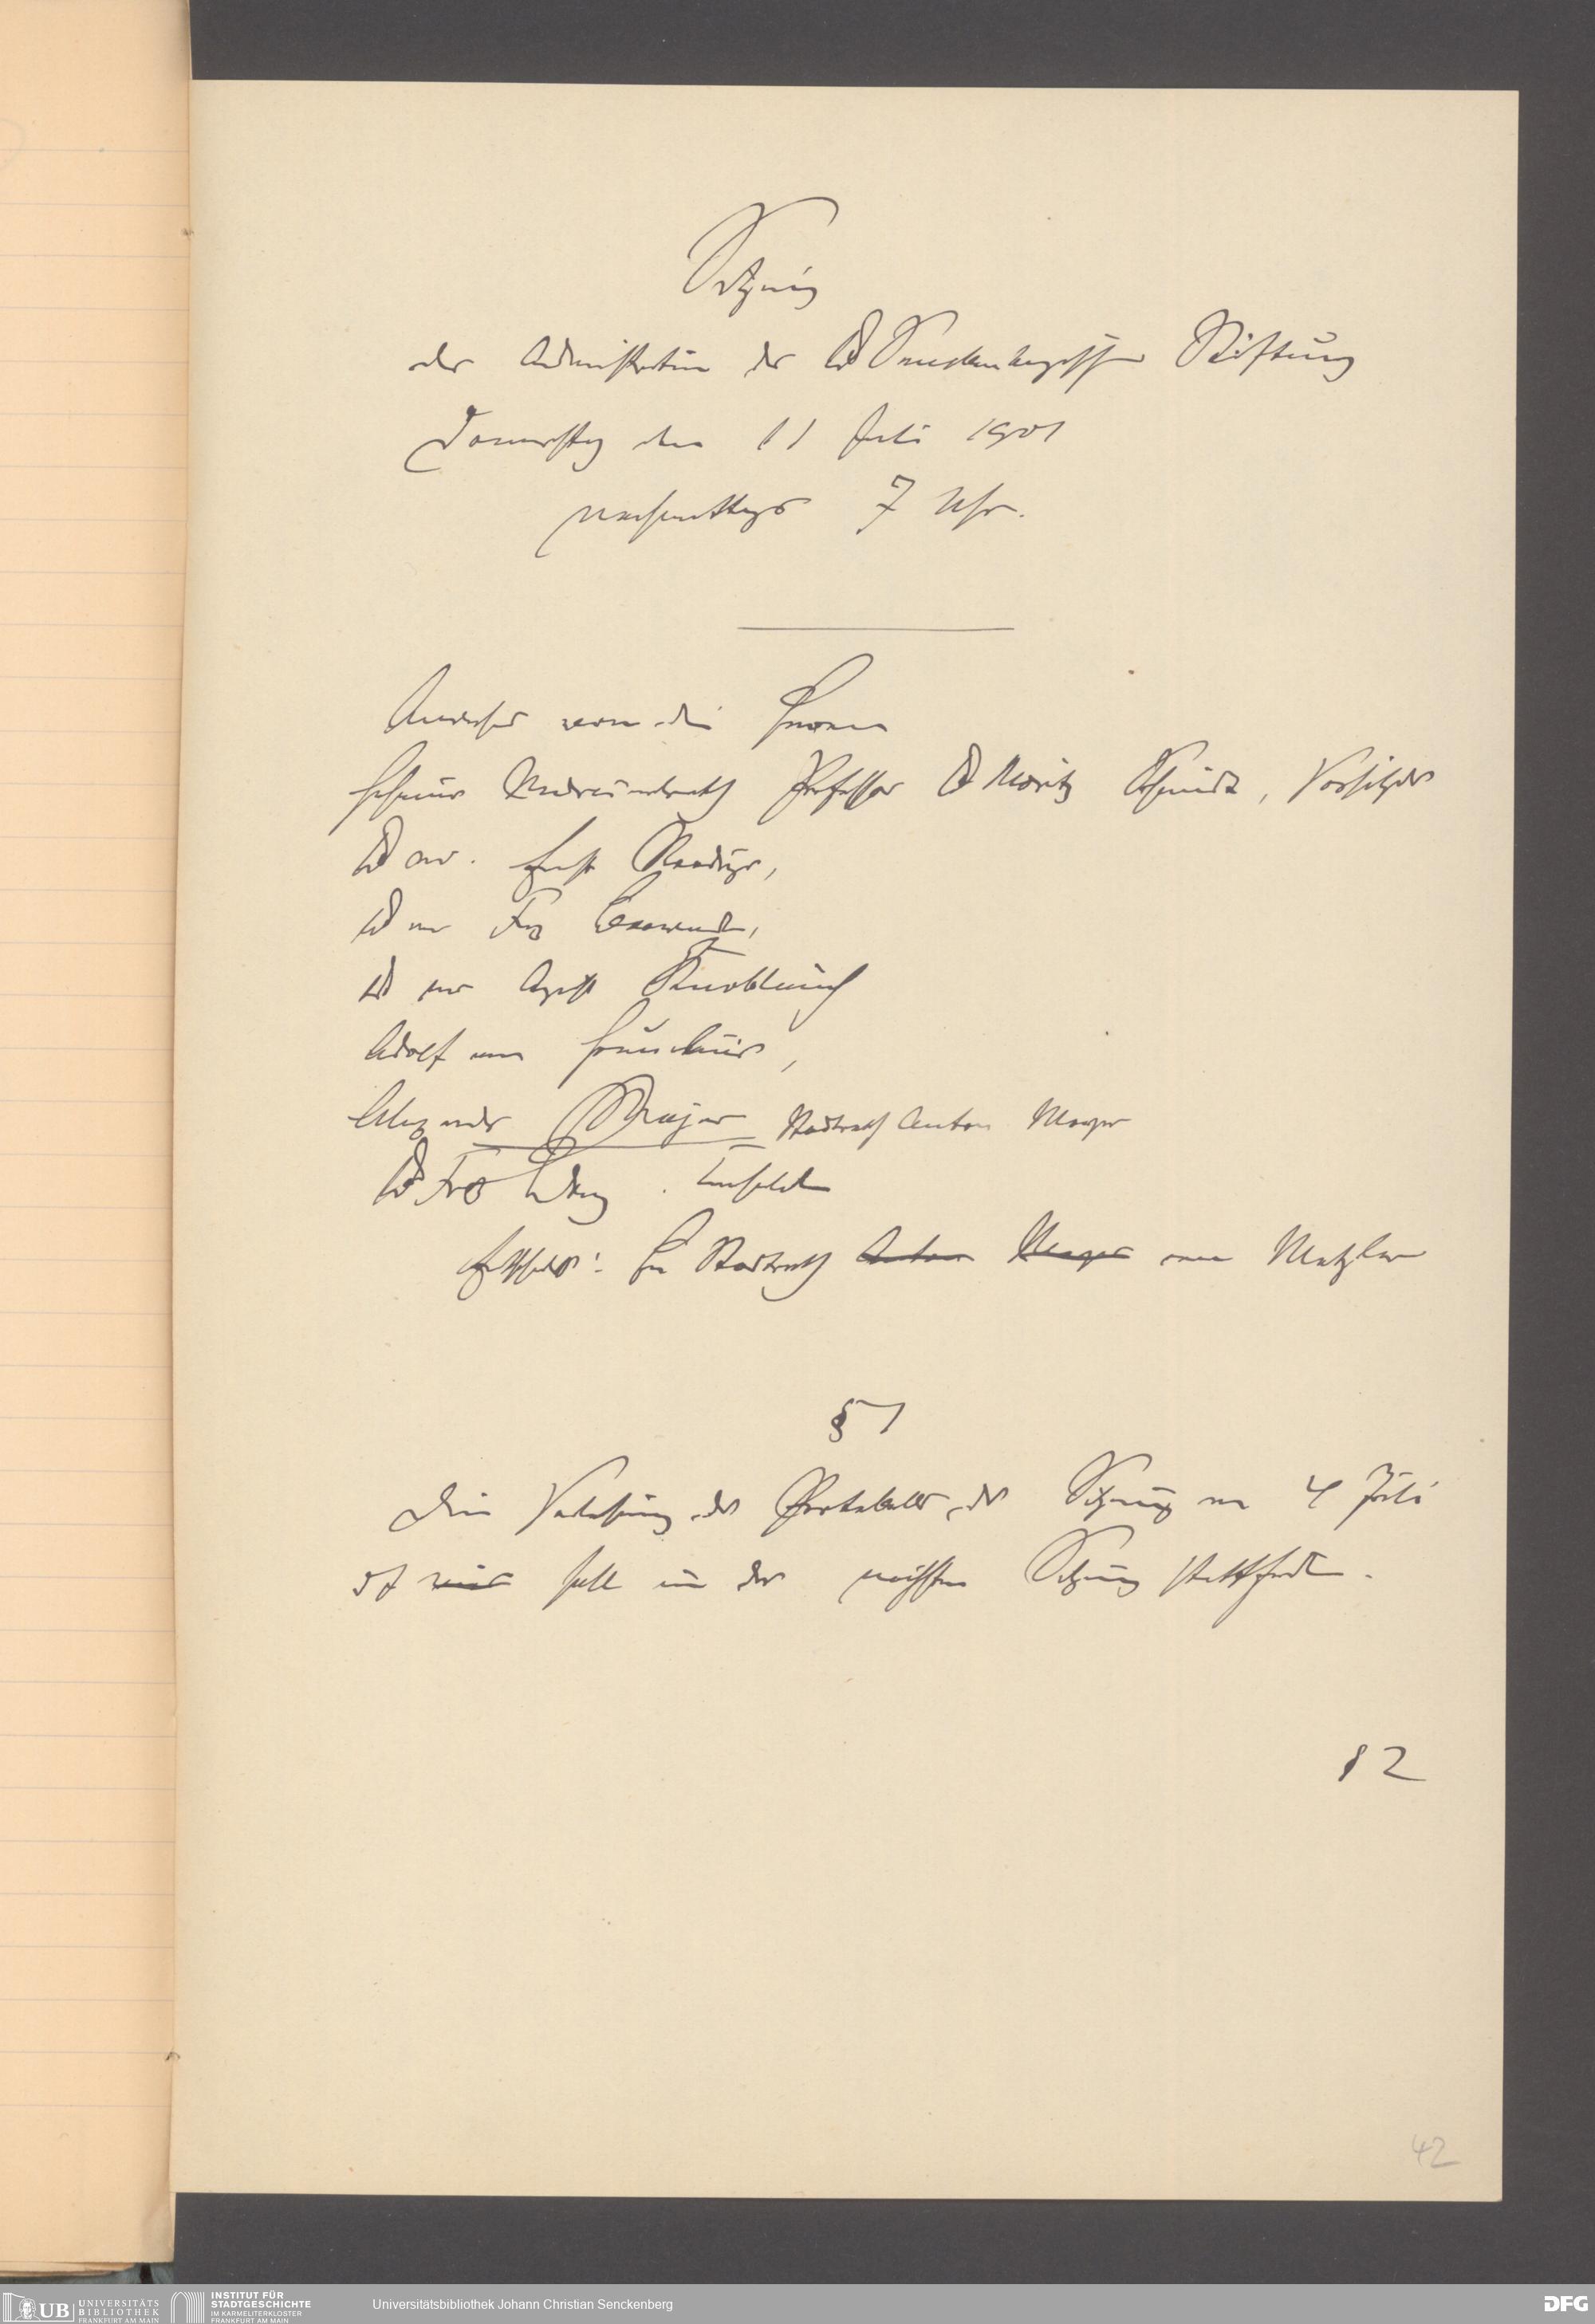 Sitzung
der Administration der Dr Senckenbergischen Stiftung
Donnerstag den 11 Juli 1901
nachmittags 7 Uhr.
Anwesend waren die Herren
Geheimer Medicinalrath Professor Dr Moritz Schmidt, Vorsitzender
Dr med. Ernst Roediger,
Dr med
Dr med August Knoblauch
Adolf von Grunelius,
Alexander Majer Stadtrath Anton Meyer
Dr Fritz
Entschuldigt: Herr Stadtrath Anton Meyer von Metzler
§ 1
Die Verlesung des Protokolles der Sitzung vom 4 Juli
soll in der nächsten Sitzung stattfinden.
§ 2
42
UB UNIVERSITÄTS
BIBLIOTHEK
FRANKFURT AM MAIN
INSTITUT FÜR
STADTGESCHICHTE
IM KARMELITERKLOSTER
FRANKFURT AM MAIN
Universitätsbibliothek Johann Christian Senckenberg
DFG